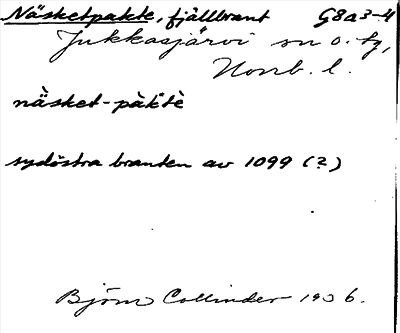 Näsketpakte, fjällbrant G8a3-4
Jukkasjärvi sn o. tg,
Norrb. l.
nä̀sket-pàktè
sydöstra branten av 1099 (?)
Björn Collinder 1936.